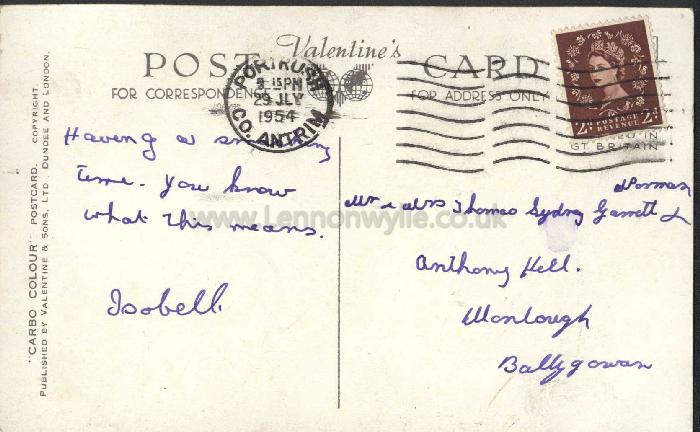 POST Valentine's CARD
FOR CORRESPONDENCE FOR ADDRESS ONLY
PORTRUSH
8-15PM
29 JLY
1954
CO. ANTRIM
2D POSTAGE REVENUE 2D
GT BRITAIN
"CARBO COLOUR" POSTCARD. COPYRIGHT.
PUBLISHED BY VALENTINE & SONS, LTD. DUNDEE AND LONDON.
Having a
time. you know
what this means.
Isobell.
www.Lennonwylie.co.uk
Norman
Mr & Mrs Thomas Sydney Garrett &
Anthony Hill.
Monlough
Ballygowan